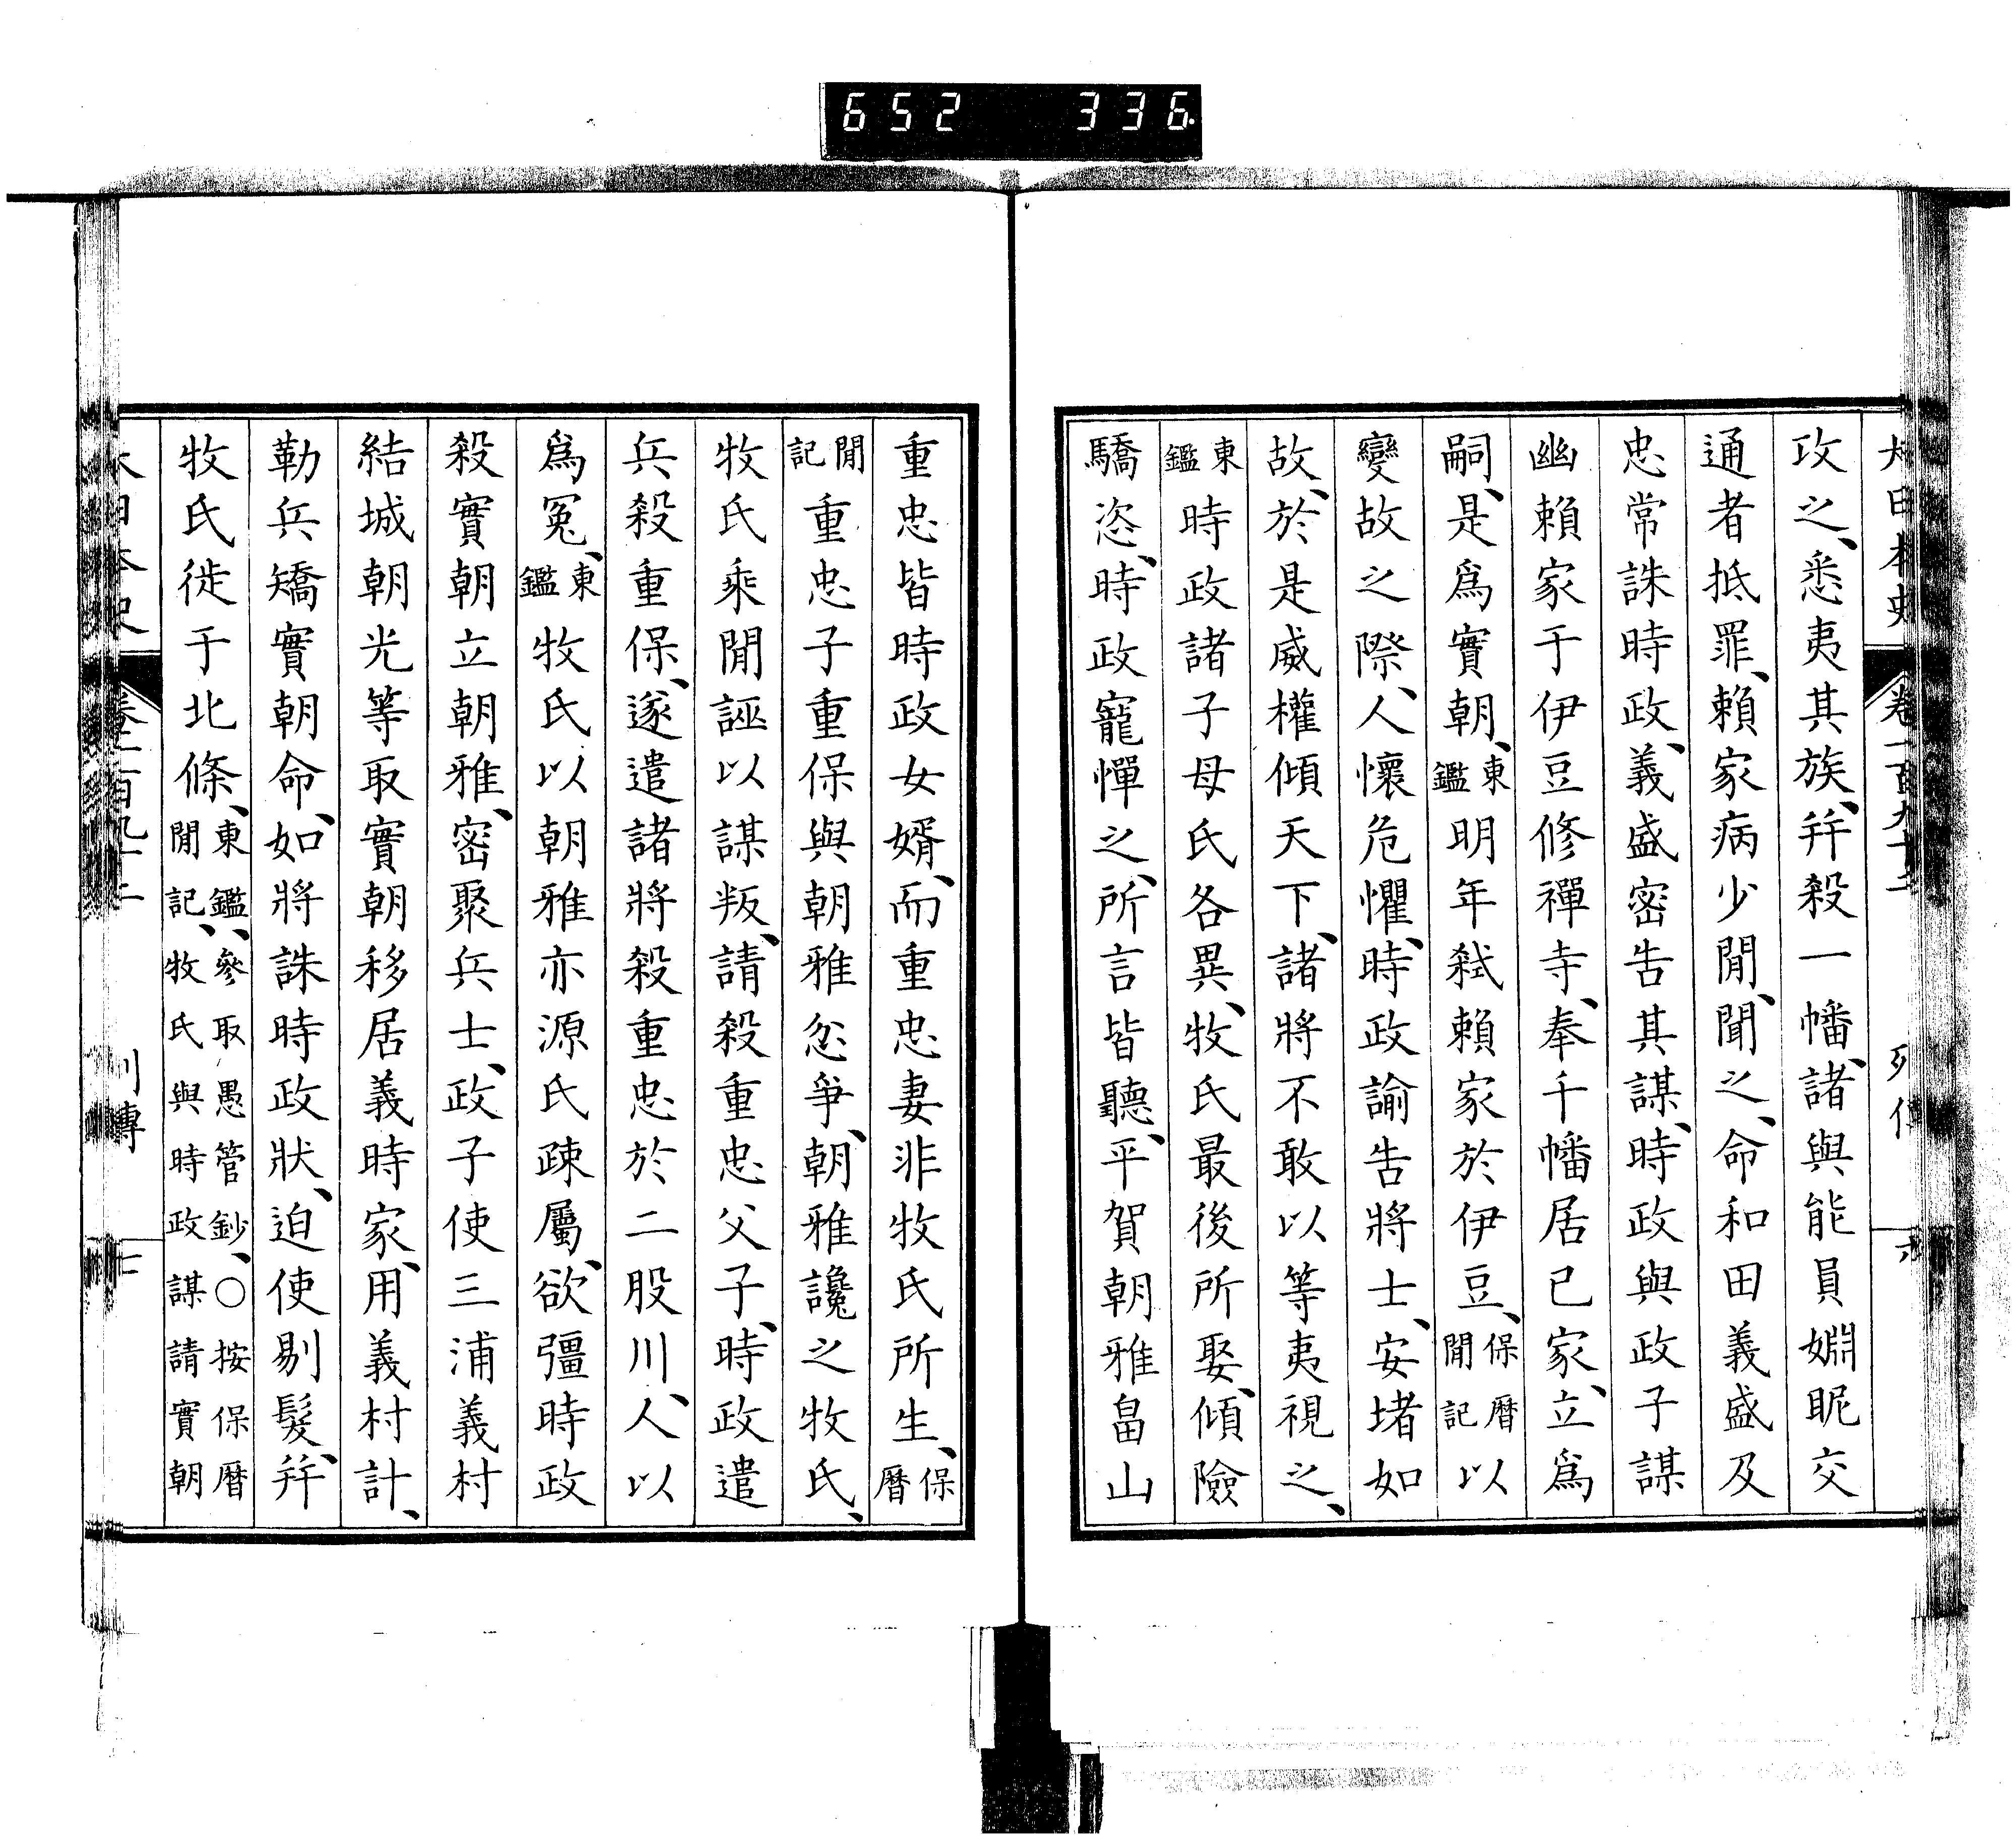 652 336
大日本史 卷一百九十二 列傳 六
攻之、悉夷其族、幷殺一幡、諸與能員婣昵交
通者抵罪、賴家病少閒、聞之、命和田義盛及
忠常誅時政、義盛密告其謀、時政與政子謀
幽賴家于伊豆修禪寺、奉千幡居已家、立爲
嗣、是爲實朝、東鑑明年弑賴家於伊豆、保曆閒記以
變故之際、人懷危懼、時政諭告將士、安堵如
故、於是威權傾天下、諸將不敢以等夷視之、
東鑑時政諸子母氏各異、牧氏最後所娶、傾險
驕恣、時政寵憚之、所言皆聽、平賀朝雅畠山
重忠皆時政女婿、而重忠妻非牧氏所生、保曆
閒記重忠子重保與朝雅忿爭、朝雅讒之牧氏、
牧氏乘閒誣以謀叛、請殺重忠父子、時政遣
兵殺重保、遂遣諸將殺重忠於二股川、人以
爲冤、東鑑牧氏以朝雅亦源氏疎屬、欲彊時政
殺實朝立朝雅、密聚兵士、政子使三浦義村
結城朝光等取實朝移居義時家、用義村計、
勒兵矯實朝命、如將誅時政狀、迫使剔髮、幷
牧氏徙于北條、東鑑、參取愚管鈔、○按保曆閒記、牧氏與時政謀請實朝
大日本史 卷一百九十二 列傳 七